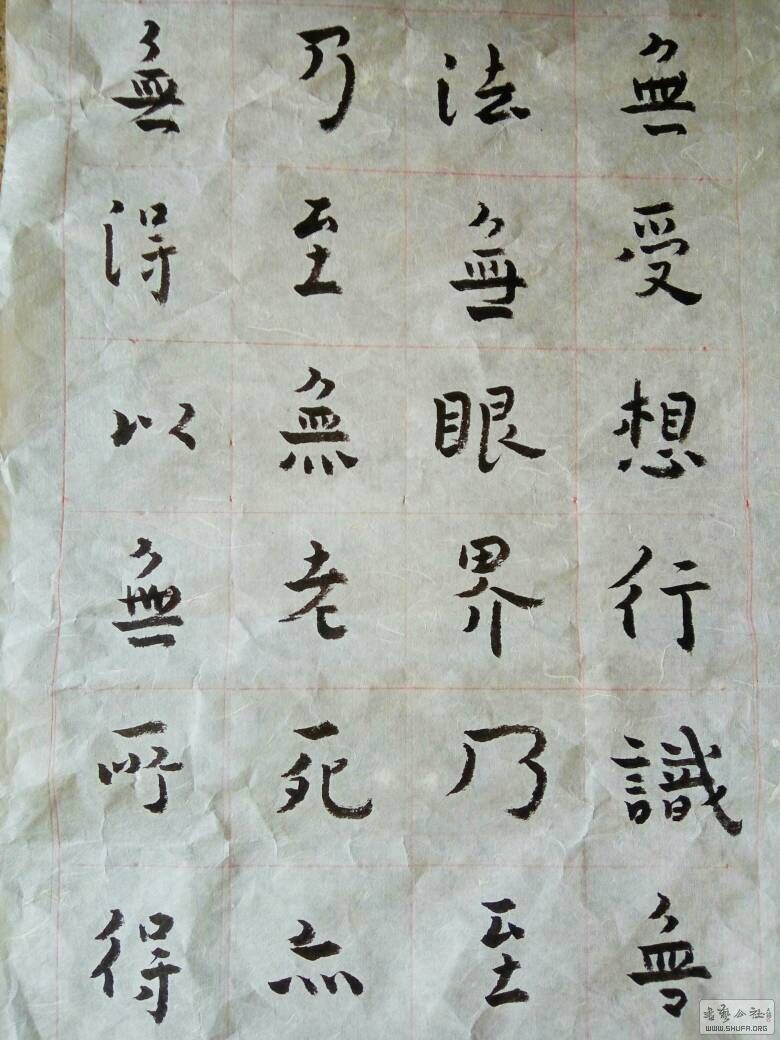 無受想行識無
法無眼界乃至
乃至無老死亦
無得以無所得
書藝公社
WWW.SHUFA.ORG